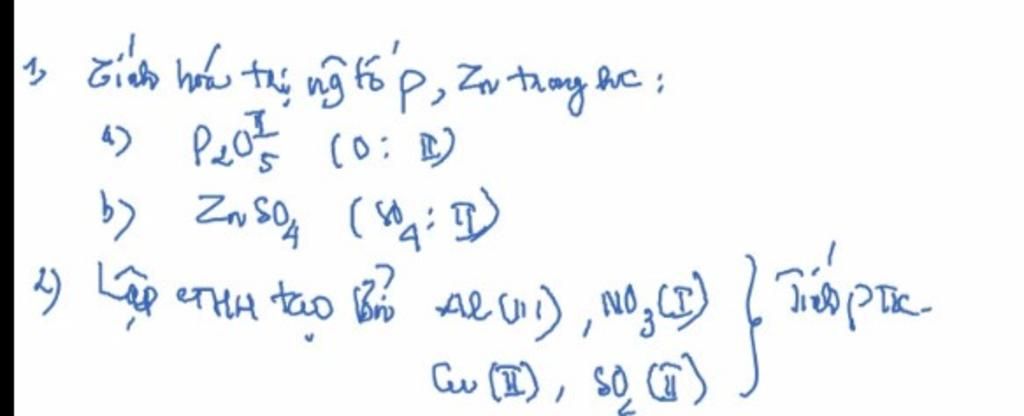 1) Tính hóa trị ng tố P, Zn trong h/c:
a) P₂O₅ᴵᴵ (O: II)
b) ZnSO₄ (SO₄: II)
2) Lập CTHH tạo bởi Al (III), NO₃ (I) } Tính PTK
Cu (II), SO₄ (II)